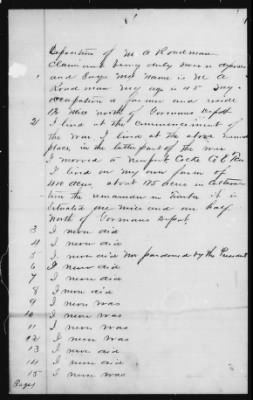 Deposition of M A Roadman
Claimant being duly sworn deposes
and Says My name is M A
Roadman My age is 45 My
occupation a farmer and reside
1½ Miles north of Gormans Depot
2 I lived at the commencement of
the War I lived at the above named
place in the latter part of the war
I moved to Newport Cocke Co Ten
I lived on my own farm of
400 acres, about 175 acres in Cultiva
tion the remainder in Timber it is
Situated one mile and one half
North of Gormans Depot
3 I never did
4 I never did
5 I never did Nor pardoned by the President
6 I never did
7 I never did
8 I never did
9 I never was
10 I never was
11 I never was
12 I never was
13 I never did
14 I never did
15 I never was
Page 1